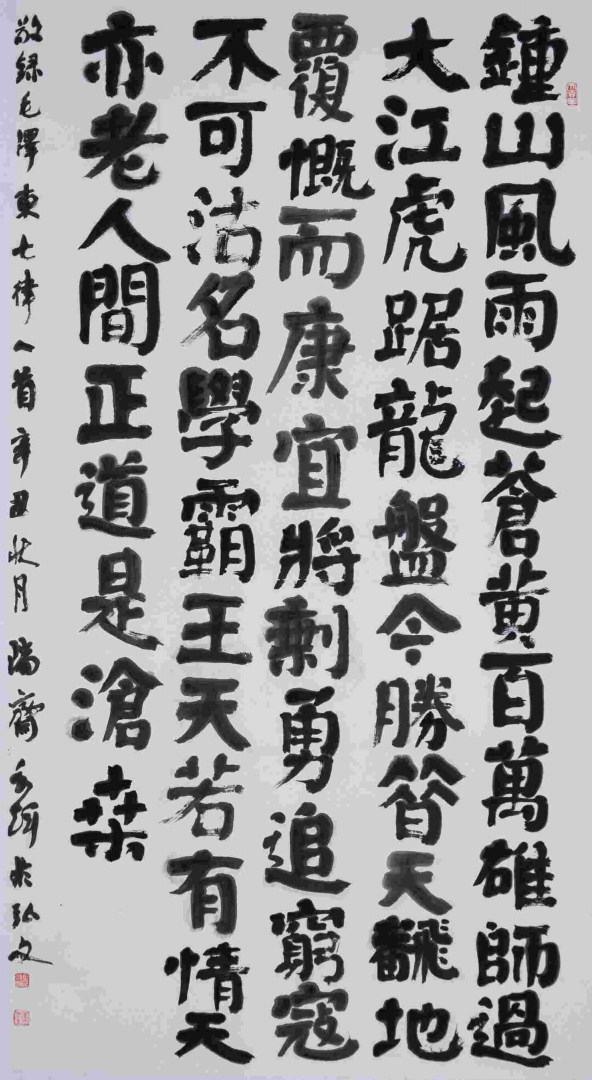 鍾山風雨起蒼黃百萬雄師過
大江虎踞龍盤今勝昔天飜地
覆慨而康宜將剩勇追窮寇
不可沽名學霸王天若有情天
亦老人間正道是滄桒
敬錄毛澤東七律一首辛丑秋月瑞齋於弘文